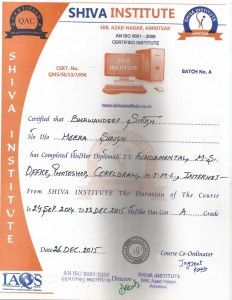 SHIVA INSTITUTE
508, AZAD NAGAR, AMRITSAR
AN ISO 9001 - 2008
CERTIFIED INSTITUTE
QAC
CERT. No.
QMS/IE/13/1696
BATCH No. A
www.shivainstitute.co.in
SHIVA INSTITUTE
Certified that Bhawandeep Singh
S/o D/o Heera Singh
has Completed His/Her Diploma I.T. Fundamental, M.S-
Office, Photoshop, CorelDraw, H.T.M.L, Internet-
From SHIVA INSTITUTE The Duration of the Course
is 24 Sep. 2014 to 23 Dec. 2015 He/She Has Got A Grade
Date 26 DEC. 2015
Course Co-Ordinator
Director
AN ISO 9001:2008
CERTIFIED INSTITUTE
SHIVA INSTITUTE
508, Azad Nagar,
Amritsar
IAQS